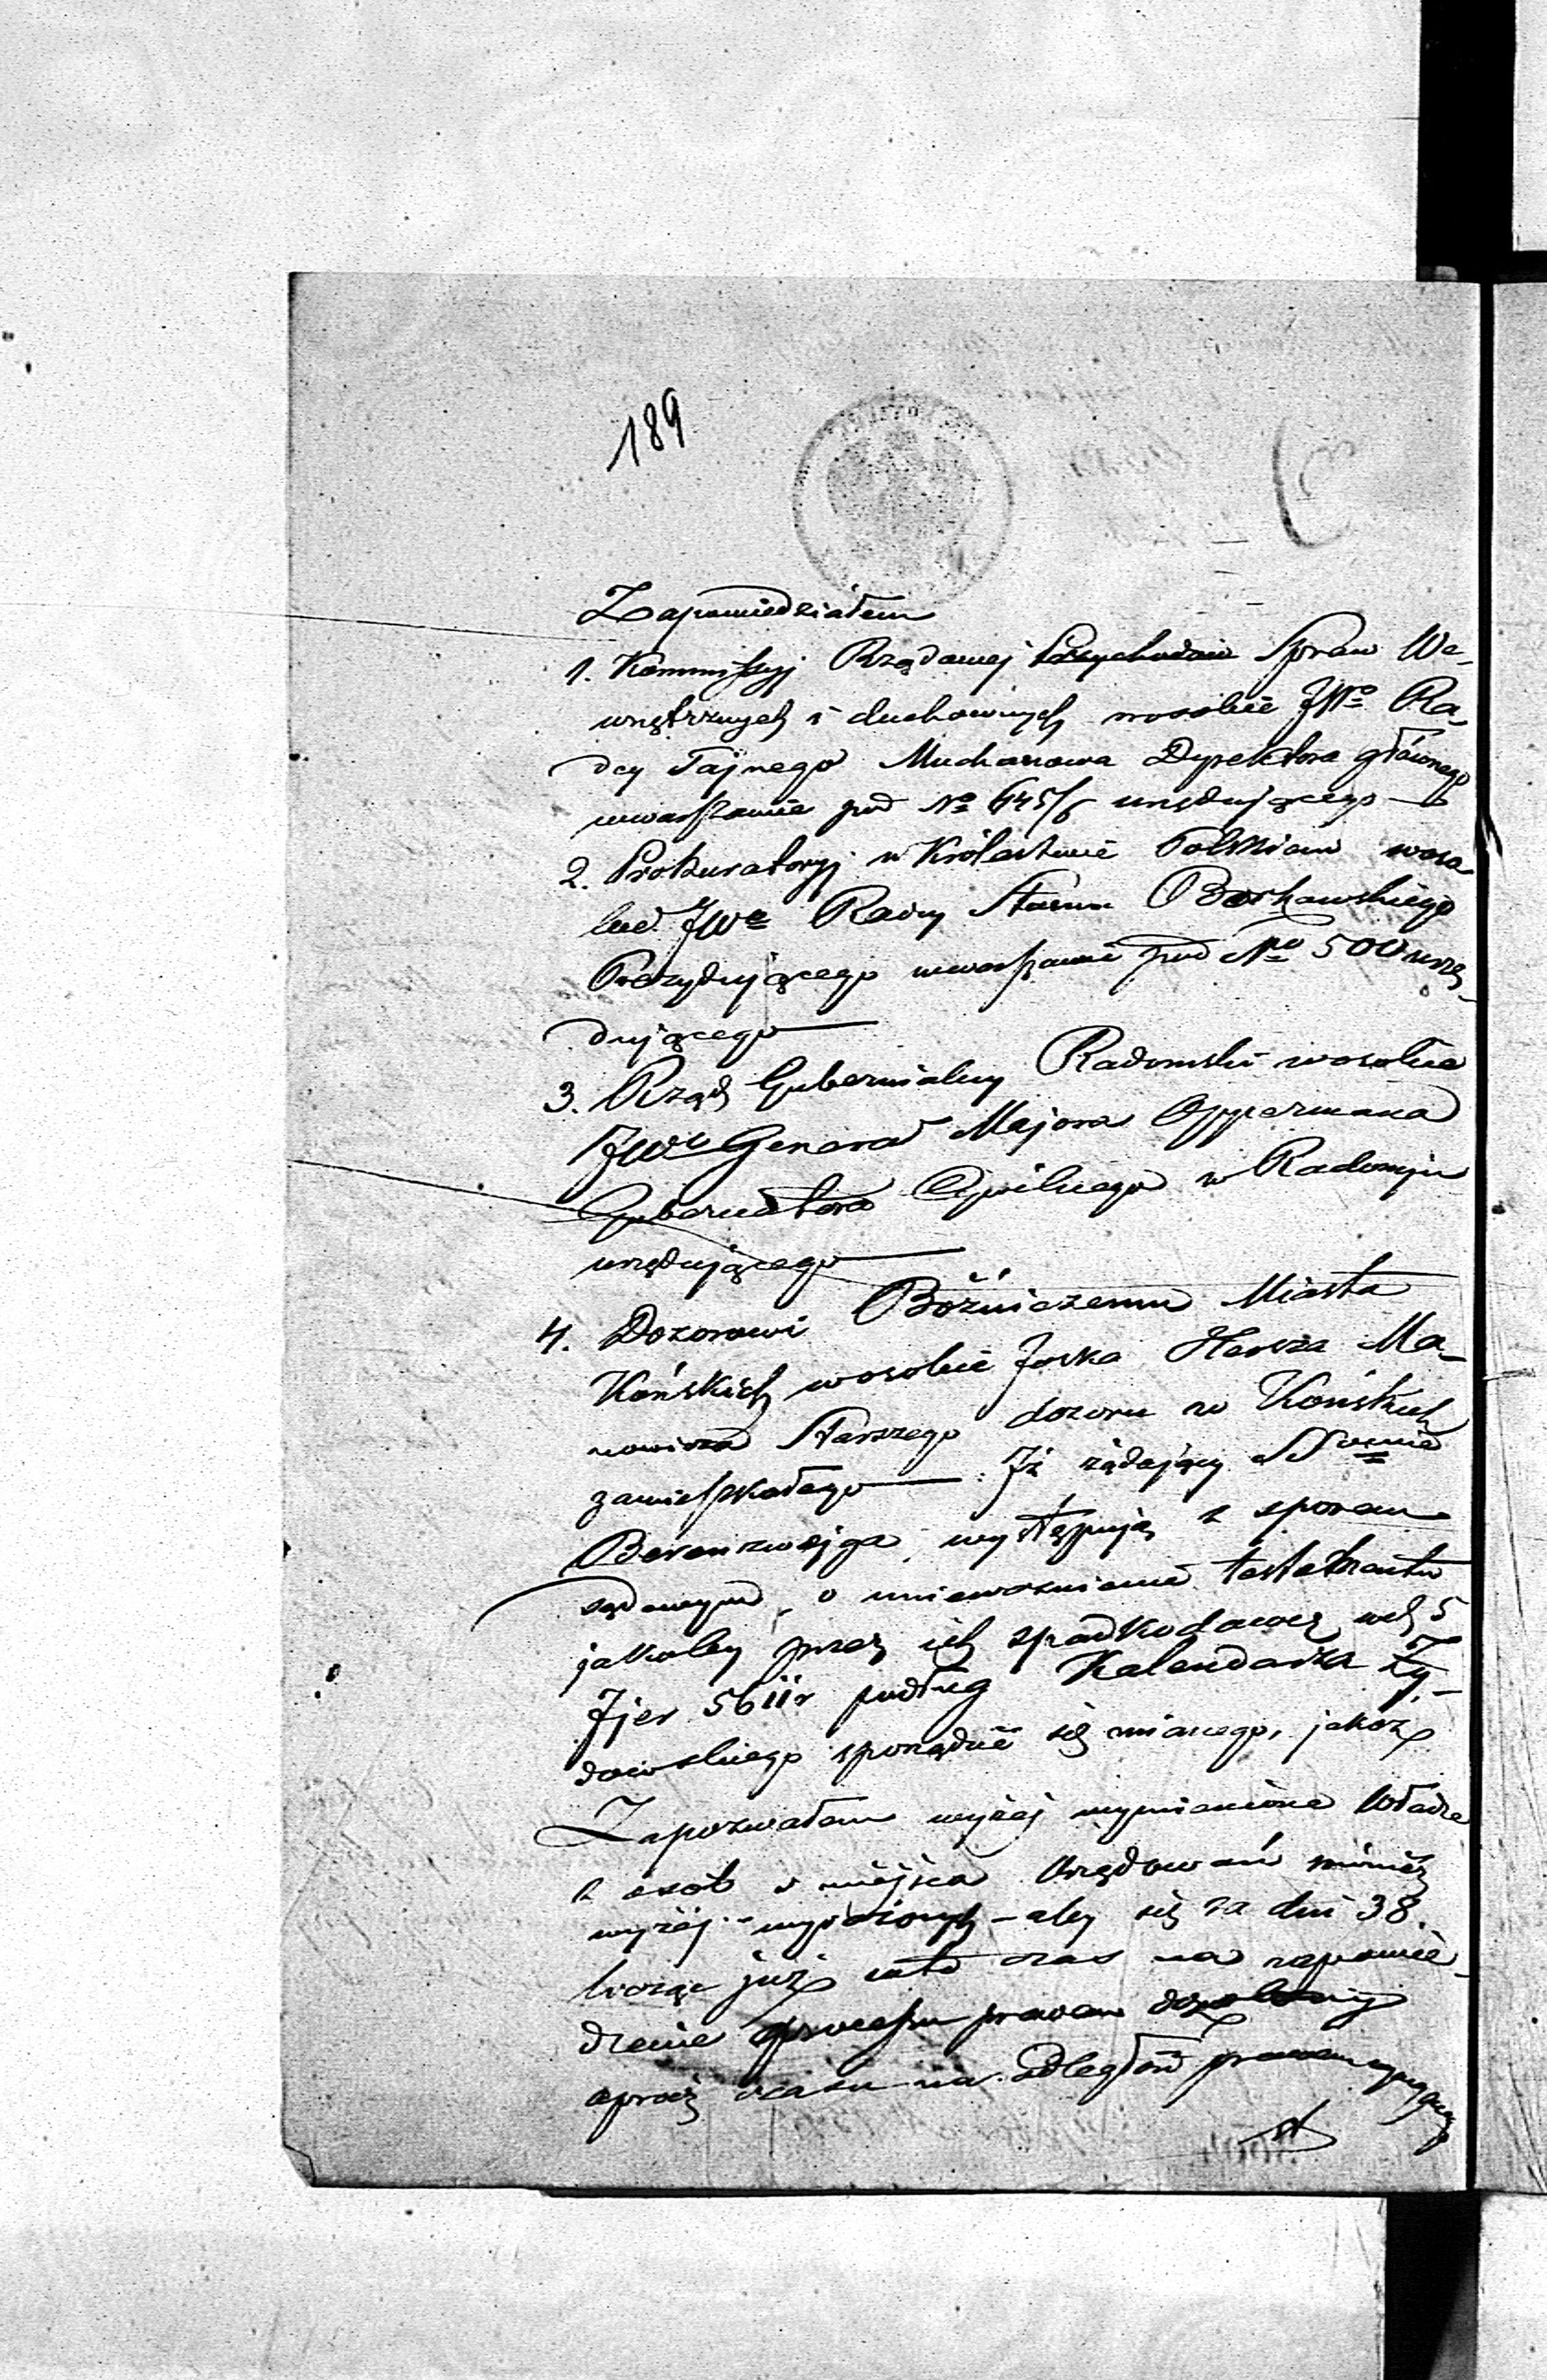 189
Zapowiedziałem
1. Kommissyj Rządowej Spraw We-
wnętrznych i duchownych wosobie JWo Ra-
dcy Tajnego Muchanowa Dyrektora głównego
wwarszawie pod No urzędującego —
2. Prokuratoryj w Królestwie Polskiem woso
bie JWo Radcy Stanu
Prezydującego wwarszawie pod No 500 urzę-
dującego —
3. Rząd Gubernialny Radomski wosobie
JWo Generał Majora Oppermana
Gubernatora Cywilnego w Radomiu
urzędującego —
4. Dozorowi Bóżniczemu Miasta
Końskich wosobie Joska Herszka Ma-
nowicza Starszego dozoru w Końskich
zamieszkałego — Iż żądający
Berenzwejga występują z sporem
sądowym o unieważnienie testamentu
jakoby przez ich spadkodawcę 5
Ijer 5611r podług Kalendarza Ży-
dowskiego sporządzić się mianego, jakoż
Zapozwałem wyżej wymienione Władze
z osób i miejsca Urzędowań
wyżej wyrażonych – aby się za dni 38.
licząc już wto czas na zapowie-
dzenie processu prawem
oprócz czasu na odległość prawem